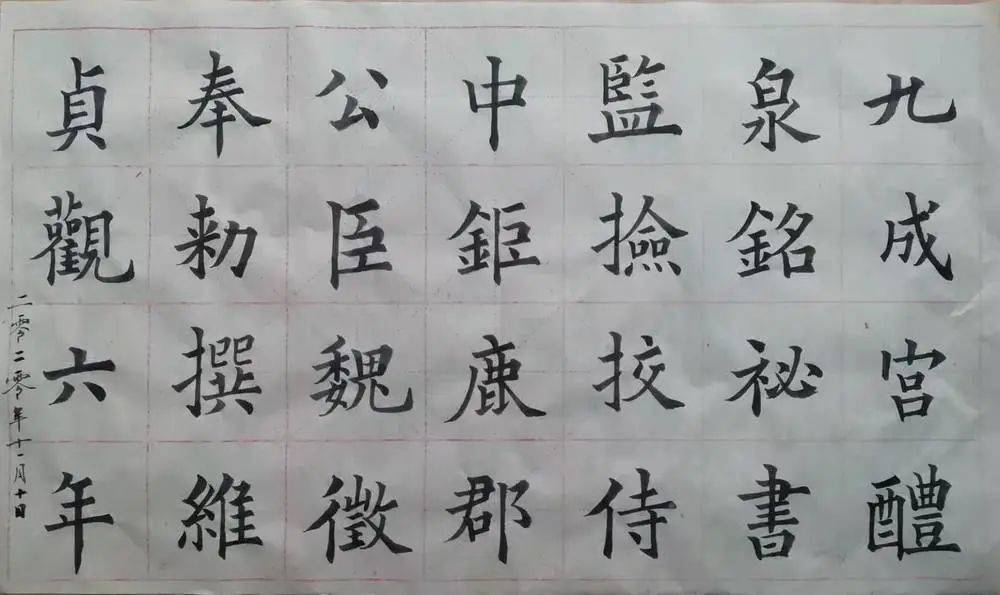 九成宫醴
泉銘祕書
監撿挍侍
中鉅鹿郡
公臣魏徵
奉勑撰維
貞觀六年
二零二零年十一月十日